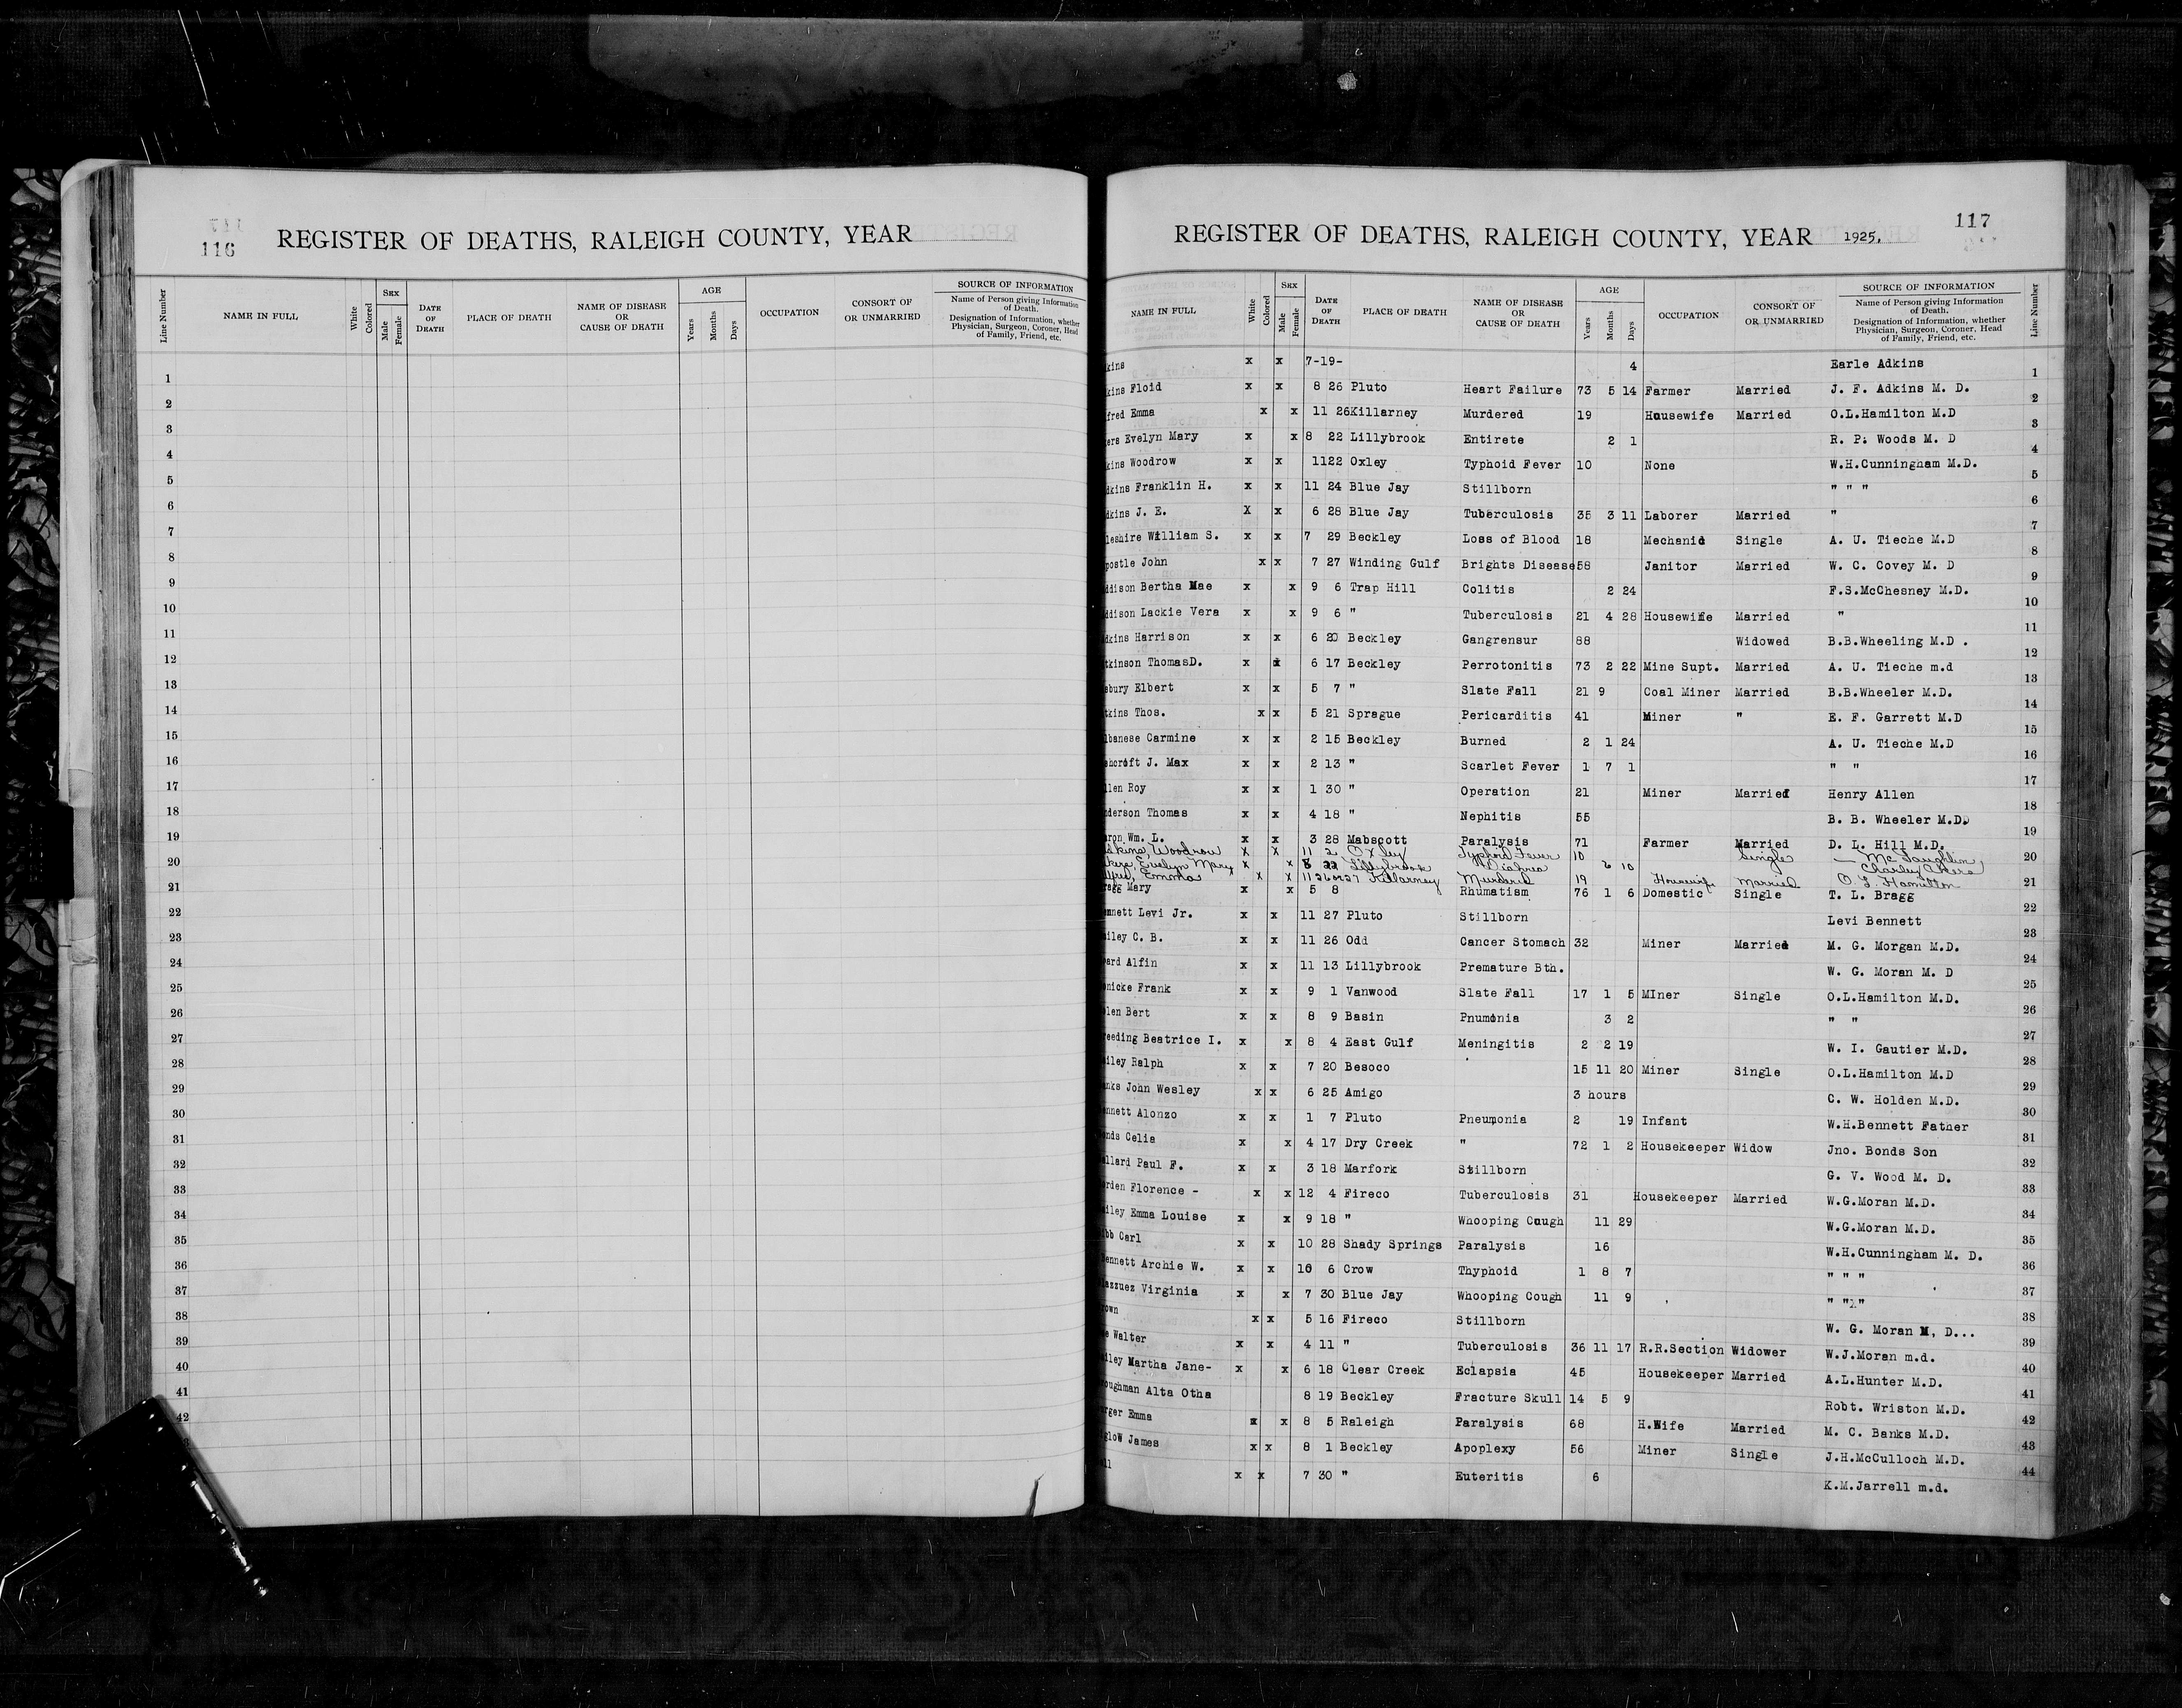 116
REGISTER OF DEATHS, RALEIGH COUNTY, YEAR
Line Number NAME IN FULL White Colored SEX Male Female DATE OF DEATH PLACE OF DEATH NAME OF DISEASE OR CAUSE OF DEATH AGE Years Months Days OCCUPATION CONSORT OF OR UNMARRIED SOURCE OF INFORMATION Name of Person giving Information of Death. Designation of Information, whether Physician, Surgeon, Coroner, Head of Family, Friend, etc.
1
2
3
4
5
6
7
8
9
10
11
12
13
14
15
16
17
18
19
20
21
22
23
24
25
26
27
28
29
30
31
32
33
34
35
36
37
38
39
40
41
42
117
REGISTER OF DEATHS, RALEIGH COUNTY, YEAR 1925.
NAME IN FULL White Colored SEX Male Female DATE OF DEATH PLACE OF DEATH NAME OF DISEASE OR CAUSE OF DEATH AGE Years Months Days OCCUPATION CONSORT OF OR UNMARRIED SOURCE OF INFORMATION Name of Person giving Information of Death. Designation of Information, whether Physician, Surgeon, Coroner, Head of Family, Friend, etc. Line Number
kins x x 7-19- 4 Earle Adkins 1
kins Floid x x 8 26 Pluto Heart Failure 73 5 14 Farmer Married J. F. Adkins M. D. 2
fred Emma x x 11 26 Killarney Murdered 19 Housewife Married O.L.Hamilton M.D 3
ers Evelyn Mary x x 8 22 Lillybrook Entirete 2 1 R. P. Woods M. D 4
kins Woodrow x x 1122 Oxley Typhoid Fever 10 None W.H.Cunningham M.D. 5
dkins Franklin H. x x 11 24 Blue Jay Stillborn " " " 6
dkins J. E. X x 6 28 Blue Jay Tuberculosis 35 3 11 Laborer Married " 7
leshire William S. x x 7 29 Beckley Loss of Blood 18 Mechanic Single A. U. Tieche M.D 8
postle John x x 7 27 Winding Gulf Brights Disease 58 Janitor Married W. C. Covey M. D 9
ddison Bertha Mae x x 9 6 Trap Hill Colitis 2 24 F.S.McChesney M.D. 10
ddison Lackie Vera x x 9 6 " Tuberculosis 21 4 28 Housewife Married " 11
dkins Harrison x x 6 20 Beckley Gangrensur 88 Widowed B.B.Wheeling M.D . 12
tkinson ThomasD. x x 6 17 Beckley Perrotonitis 73 2 22 Mine Supt. Married A. U. Tieche m.d 13
sbury Elbert x x 5 7 " Slate Fall 21 9 Coal Miner Married B.B.Wheeler M.D. 14
tkins Thos. x x 5 21 Sprague Pericarditis 41 Miner " E. F. Garrett M.D 15
lbanese Carmine x x 2 15 Beckley Burned 2 1 24 A. U. Tieche M.D 16
shcroft J. Max x x 2 13 " Scarlet Fever 1 7 1 " " 17
llen Roy x x 1 30 " Operation 21 Miner Married Henry Allen 18
nderson Thomas x x 4 18 " Nephitis 55 B. B. Wheeler M.D. 19
aron Wm. L. x x 3 28 Mabscott Paralysis 71 Farmer Married D. L. Hill M.D.
dkins, Woodrow x x 11 2 Oxley Typhoid Fever 10 Single — McLaughlin 20
Akers, Evelyn Mary x x 8 22 Lillybrook Diahrea 2 10 Charley Akers
lfred, Emma x x 11 26 or 27 Killarney Murdered 19 Housewife Married O. L. Hamilton 21
ragg Mary x x 5 8 Rhumatism 76 1 6 Domestic Single T. L. Bragg 22
ennett Levi Jr. x x 11 27 Pluto Stillborn Levi Bennett 23
ailey C. B. x x 11 26 Odd Cancer Stomach 32 Miner Married M. G. Morgan M.D. 24
eard Alfin x x 11 13 Lillybrook Premature Bth. W. G. Moran M. D 25
enicke Frank x x 9 1 Vanwood Slate Fall 17 1 5 MIner Single O.L.Hamilton M.D. 26
olen Bert x x 8 9 Basin Pnumonia 3 2 " " 27
reeding Beatrice I. x x 8 4 East Gulf Meningitis 2 2 19 W. I. Gautier M.D. 28
ailey Ralph x x 7 20 Besoco 15 11 20 Miner Single O.L.Hamilton M.D 29
anks John Wesley x x 6 25 Amigo 3 hours C. W. Holden M.D. 30
ennett Alonzo x x 1 7 Pluto Pneumonia 2 19 Infant W.H.Bennett Father 31
onds Celia x x 4 17 Dry Creek " 72 1 2 Housekeeper Widow Jno. Bonds Son 32
allard Paul F. x x 3 18 Marfork Stillborn G. V. Wood M. D. 33
orden Florence - x x 12 4 Fireco Tuberculosis 31 Housekeeper Married W.G.Moran M.D. 34
ailey Emma Louise x x 9 18 " Whooping Cough 11 29 W.G.Moran M.D. 35
ibb Carl x x 10 28 Shady Springs Paralysis 16 W.H.Cunningham M. D. 36
Bennett Archie W. x x 10 6 Crow Thyphoid 1 8 7 " " " 37
lazzuez Virginia x x 7 30 Blue Jay Whooping Cough 11 9 " " " 38
rown x x 5 16 Fireco Stillborn W. G. Moran M, D... 39
e Walter x x 4 11 " Tuberculosis 36 11 17 R.R.Section Widower W.J.Moran m.d. 40
ailey Martha Jane- x x 6 18 Clear Creek Eclapsia 45 Housekeeper Married A.L.Hunter M.D. 41
oughman Alta Otha 8 19 Beckley Fracture Skull 14 5 9 Robt. Wriston M.D. 42
urger Emma x x 8 5 Raleigh Paralysis 68 H.Wife Married M. C. Banks M.D. 43
glow James x x 8 1 Beckley Apoplexy 56 Miner Single J.H.McCulloch M.D. 44
ll x x 7 30 " Euteritis 6 K.M.Jarrell m.d.